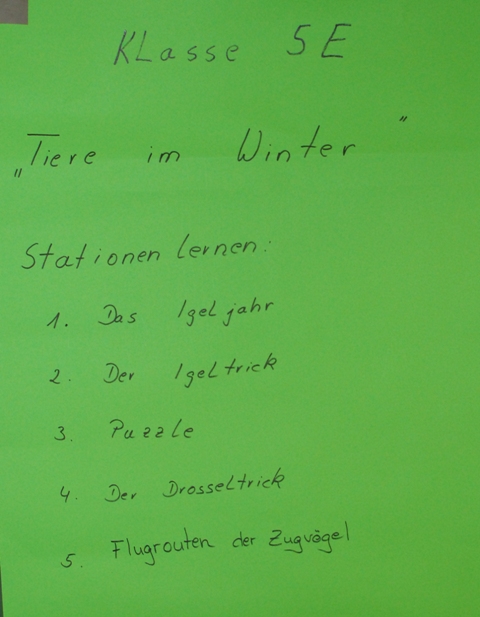 Klasse 5E
„Tiere im Winter"
Stationen lernen:
1. Das Igeljahr
2. Der Igeltrick
3. Puzzle
4. Der Drosseltrick
5. Flugrouten der Zugvögel